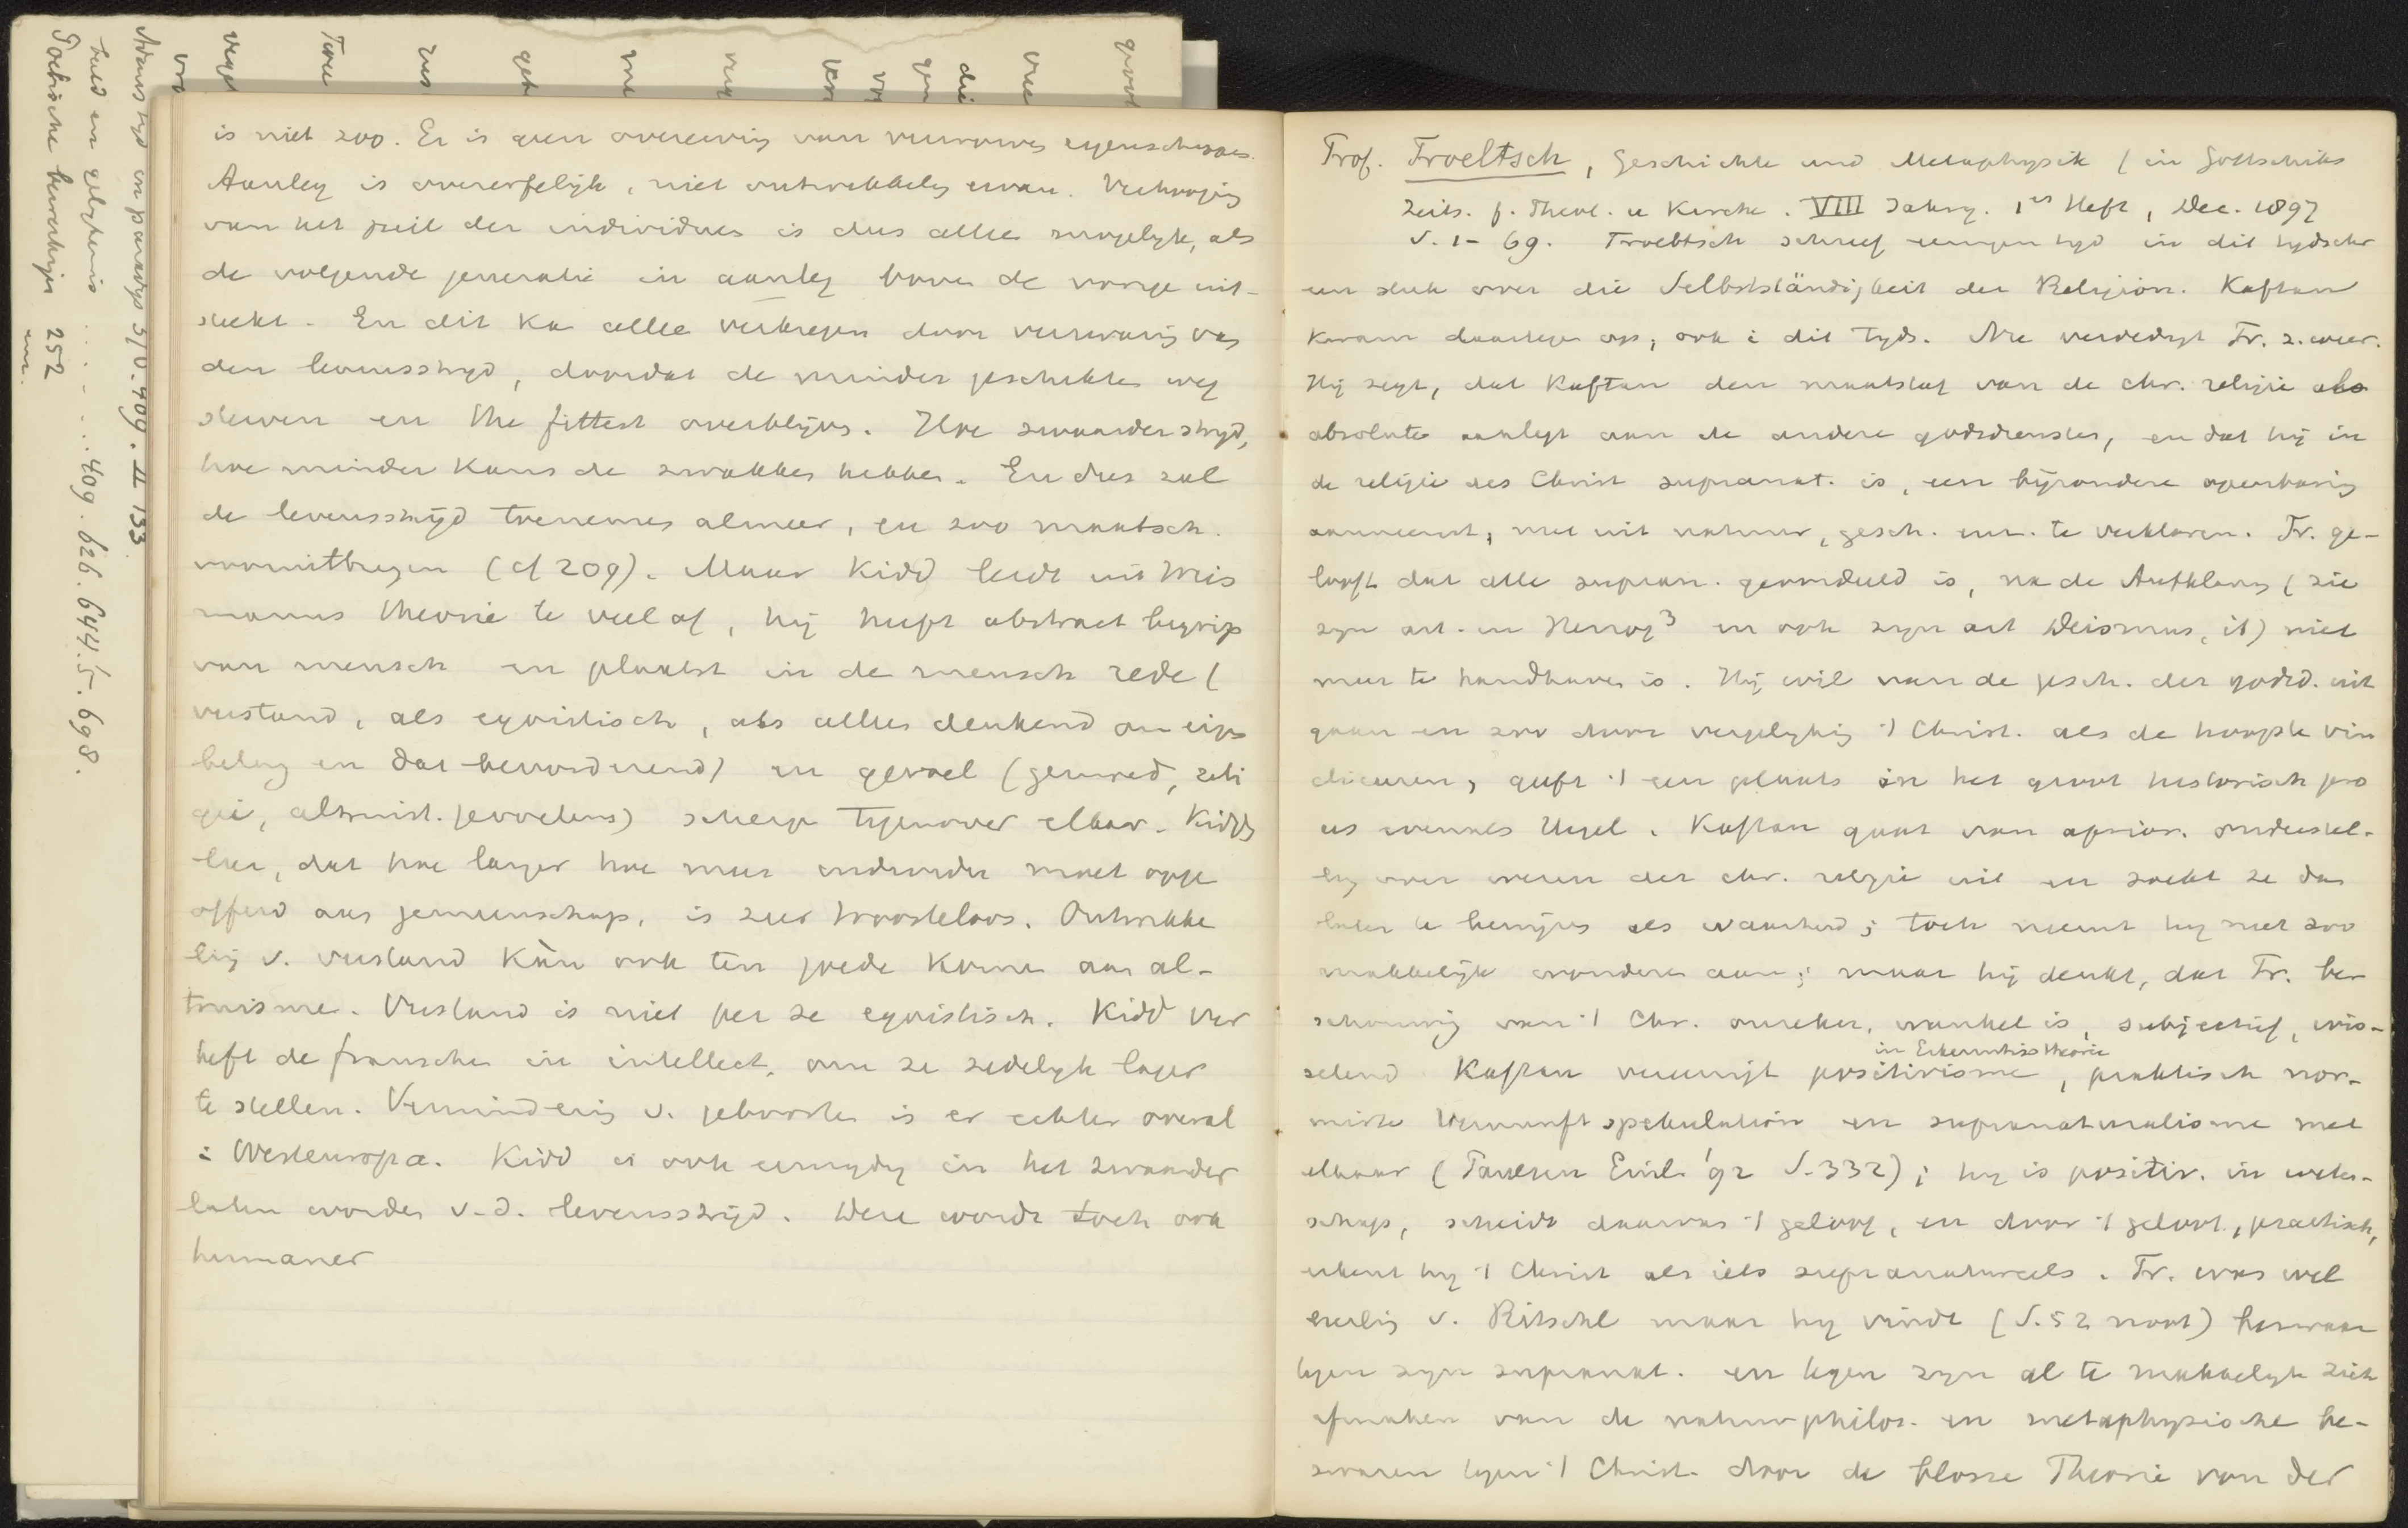 is niet zoo. Er is geen overerving van verworven eigenschappen.
Aanleg is overerfelijk, niet ontwikkeling ervan. Verhooging
van het peil der individuen is dus alleen mogelyk, als
de volgende generatie in aanleg boven de vorige uit-
steekt. En dit ka alleen verkregen door verzwaring van
den levensstryd, doordat de minder geschikten weg
sterven en the fittest overblijven. Hoe zwaarder stryd,
hoe minder kans de zwakkes hebben. En dus zal
de levensstrijd toenemen almeer, en zoo maatsch.
vooruitbrengen (cf 209). Maar Kidd leidt uit Weis
manns theorie te veel af, hij heeft abstract begrip
van mensch en plaatst in de mensch rede (
verstand, als egoistisch, als alleen denkend om eigen
belang en dat bevorderend) en gevoel (gemoed, reli
gie, altruist. gevoelens) scherp tegenover elkaar. Kidds
leer, dat hoe langer hoe meer individu moet opge
offerd aan gemeenschap, is zeer troosteloos. Ontwikke
ling v. verstand kàn ook ten goede komen aan al-
truisme. Verstand is niet per se egoistisch. Kidd ver
heft de franschen in intellect, om ze zedelyk lager
te stellen. Vermindering v. geboorten is er echter overal
i Westeuropa. Kidd is ook eenzydig in het zwaarder
laten worden v.d. levensstrijd. Deze wordt toch ook
humaner
Prof. Troeltsch, Geschichte und Metaphysik (in Gottschicks
Zeits. f. Theol. u Kirche. VIII Jahrg. 1es Heft, Dec. 1897
S. 1-69. Troeltsch schreef eenigen tyd in dit tydschr
een stuk over die Selbstständigkeit der Religion. Kaftan
kwam daartegen op, ook i dit tyds. Nu verdedigt Tr. z. weer.
Hij zegt, dat Kaftan den maatstaf van de chr. religie als
absolute aanlegt aan de andere godsdiensten, en dat hij in
de religie des Christ supranat. is, een bijzondere openbaring
aanneemt, niet uit natuur, gesch. enz. te verklaren. Tr. ge-
looft dat alle supran. geoordeeld is, na de Aufklärung (zie
zyn art. in Herzog3 en ook zyn art Deismus, ib) niet
meer te handhaven is. Hij wil van de gesch. der godsd. uit
gaan en zoo door vergelyking 't Christ. als de hoogste vin
diceeren, geeft 't een plaats in het groot historisch pro
ces evenals Hegel. Kaftan gaat van aprior. onderstel-
ling over wezen der chr. religie uit en zoekt ze dan
later te bewijzen als waarheid; toch neemt hy niet zoo
makkelijk wonderen aan; maar hij denkt, dat Tr. be
schouwing van 't Chr. onzeker, wankel is, subjectief, wis-
selend. Kaftan vereenigt positivisme, praktisch nor-
in Erkenntnisstheorie
mirte Vernunftspekulation en supranaturalisme met
elkaar (Paulsen Einl. '92 S. 332); hy is positiv. in weten-
schap, scheidt daarvan 't geloof, en door 't geloof, practisch,
erkent hy 't Christ als iets supranatureels. Tr. was wel
leerling v. Ritschl maar hy vindt (S. 52 noot) bezwaar
tegen zyn supranat. en tegen zyn al te makkelyk zich
afmaken van de natuurphilos. en metaphysische be-
zwaren tegen 't Christ. door de blosse Theorie von der
252
409. 626. 644.5. 698.
510. 409. II 133